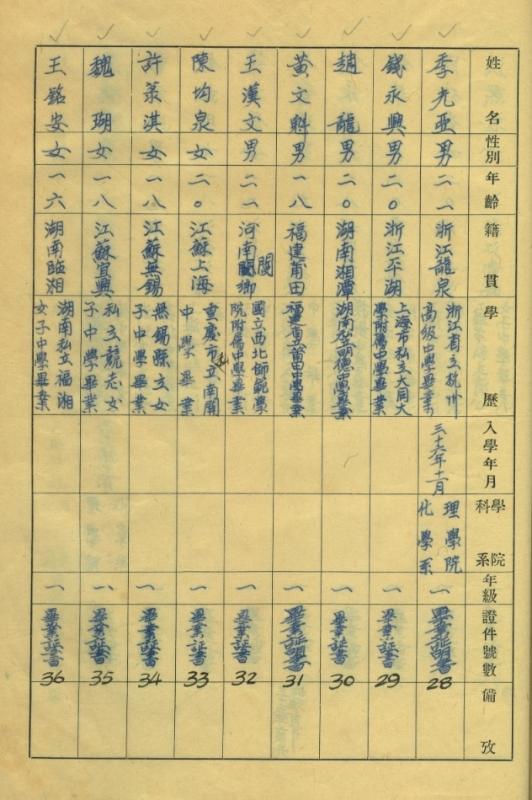 姓名 性別 年齡 籍貫 學歷 入學年月 學院科系 年級 證件號數 備攷
季光亞 男 二一 浙江龍泉 浙江省立杭州高級中學畢業 三十六年十一月 理學院化學系 一 畢業証明書 28
錢永興 男 二〇 浙江平湖 上海市私立大同大學附屬中學畢業 一 畢業証書 29
趙龍 男 二〇 湖南湘潭 湖南私立明德中學畢業 一 畢業証書 30
黃文魁 男 一八 福建莆田 福建省立莆田中學畢業 一 畢業証明書 31
王漢文 男 二一 河南閿鄉 閿 國立西北師範學院附屬中學畢業 一 畢業証書 32
陳均泉 女 二〇 江蘇上海 重慶市私立南開中學畢業 一 畢業証書 33
許菉淇 女 一八 江蘇無錫 無錫縣立女子中學畢業 一 畢業証書 34
魏瑚 女 一八 江蘇宜興 私立競志女子中學畢業 一 畢業証書 35
王銘安 女 一六 湖南臨湘 湖南私立福湘女子中學畢業 一 畢業証書 36